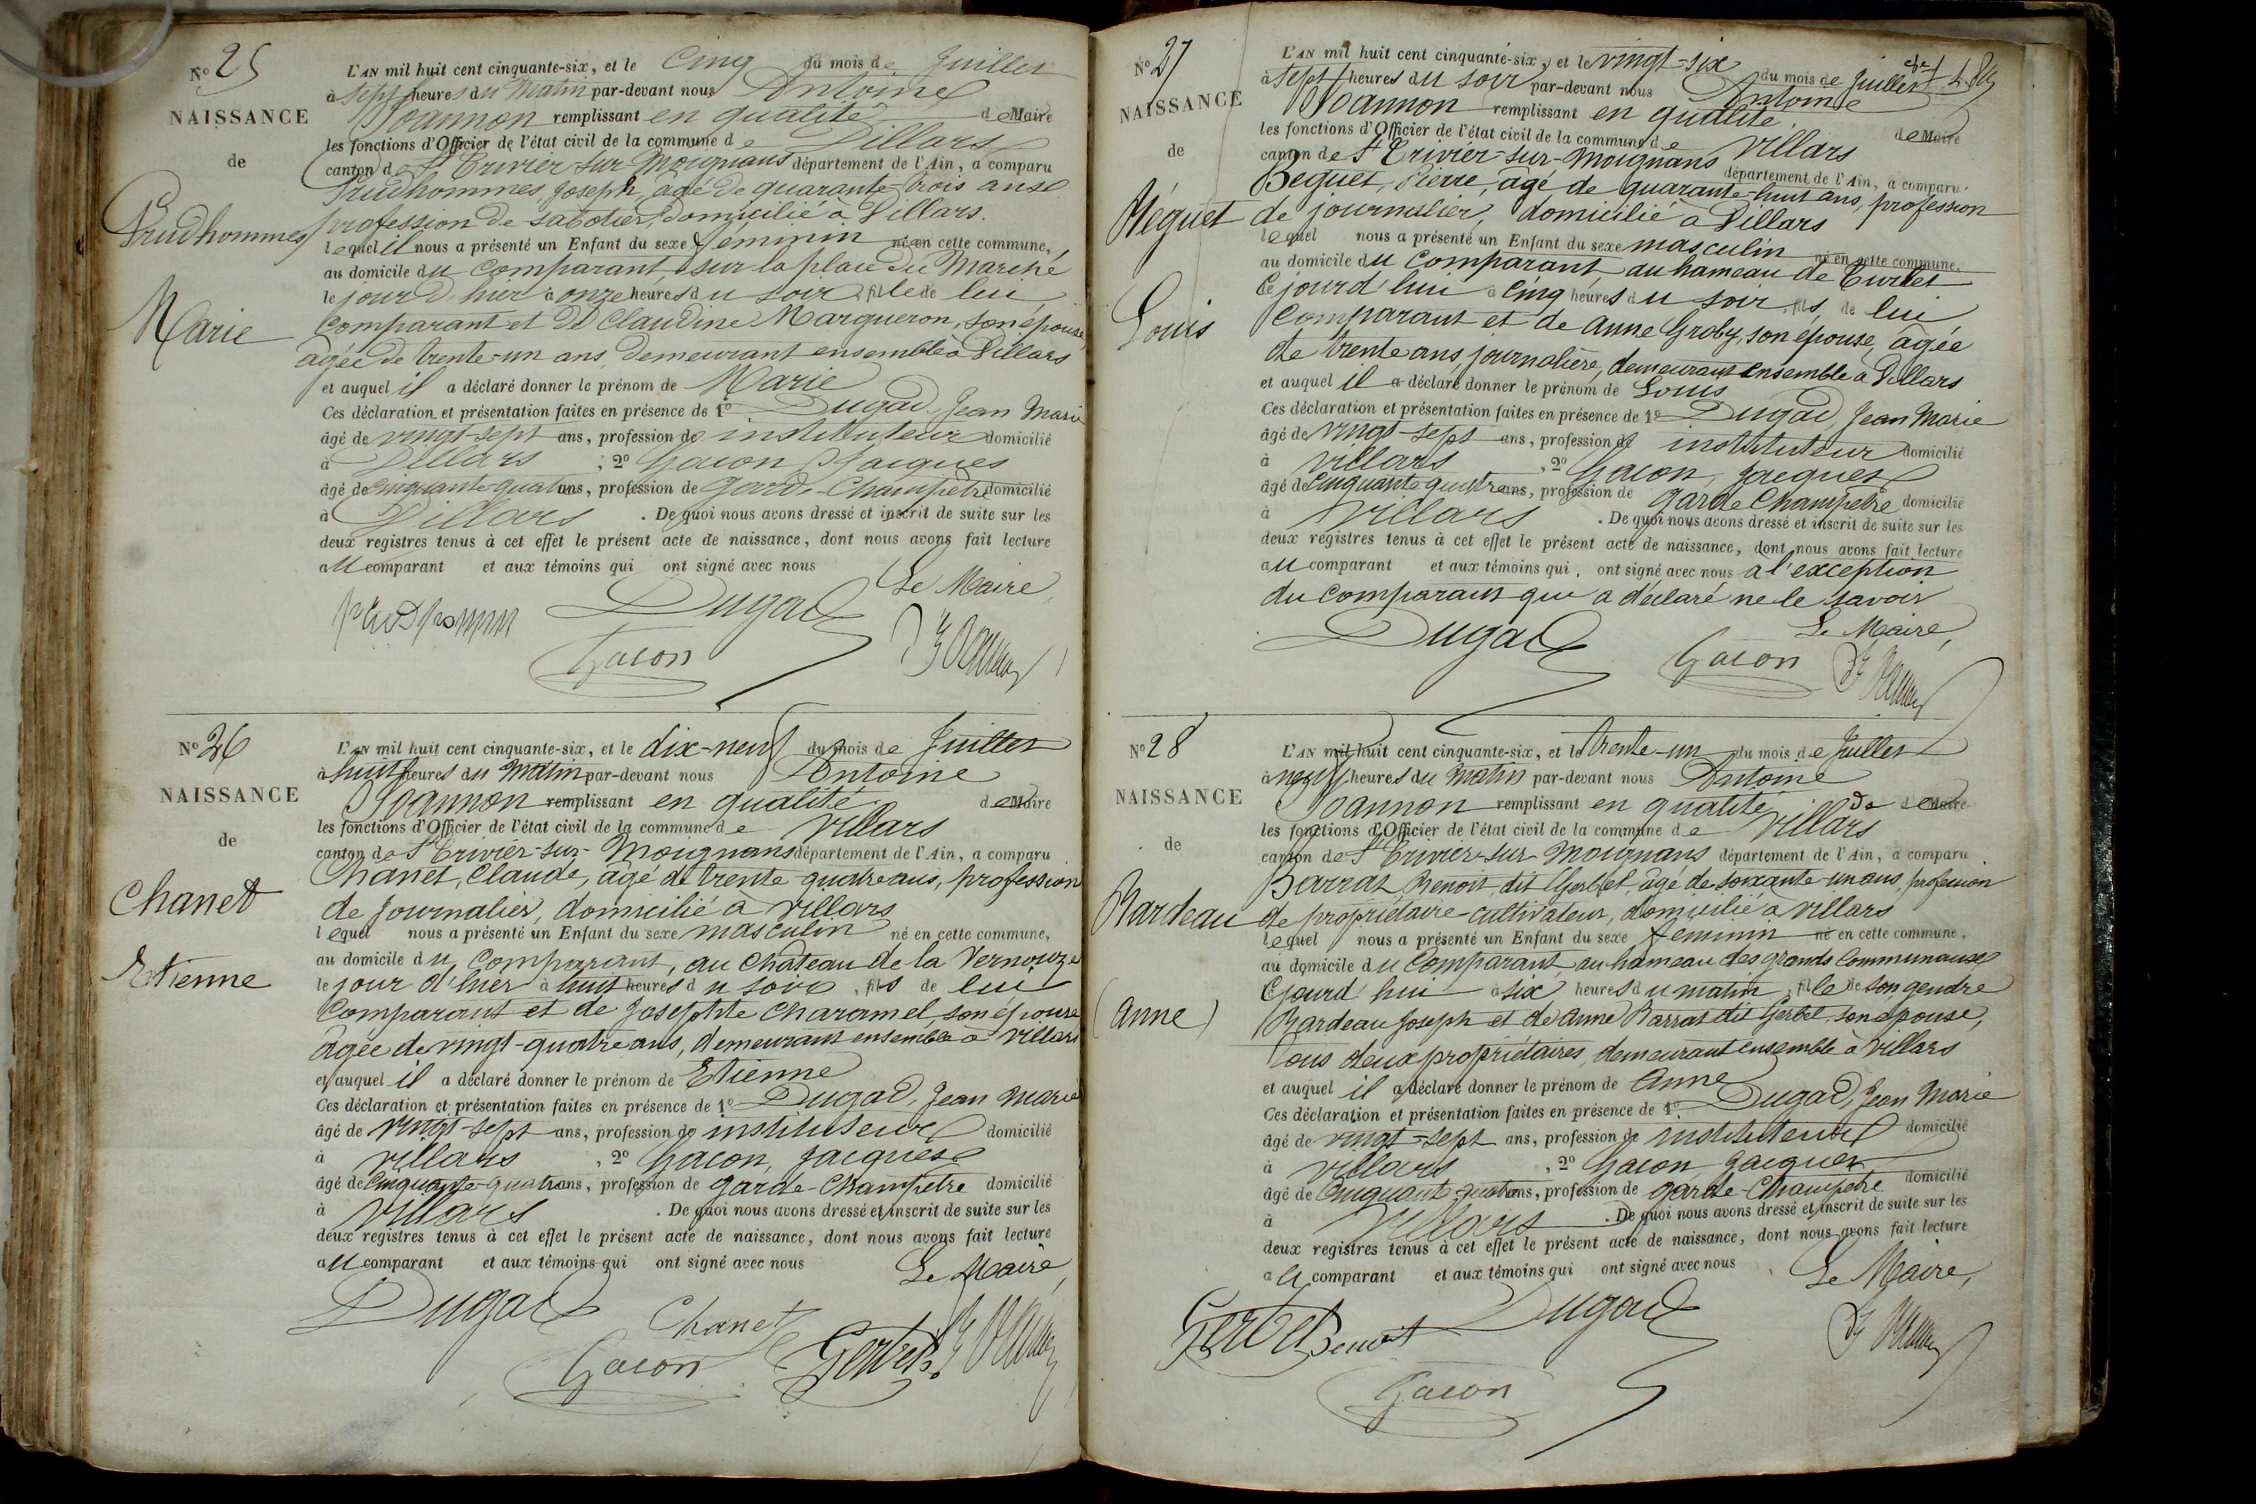 N° 25
NAISSANCE
de
Prudhommes
Marie
L'AN mil huit cent cinquante-six, et le Cinq du mois de Juillet
à sept heures du Matin par-devant nous Antoine
Joannon remplissant en qualité de Maire
les fonctions d'Officier de l'état civil de la commune de Villars
canton de St Trivier sur Moignans département de l'Ain, a comparu
Prudhommes Joseph âgé de quarante trois ans
profession de sabotier, domicilié à Villars.
lequel il nous a présenté un Enfant du sexe féminin né en cette commune,
au domicile du Comparant, sur la place du Marché
le jour d'hier à onze heures du soir, fille de lui
Comparant et de Claudine Margueron, son épouse
âgée de trente-un ans, demeurant ensemble à Villars
et auquel il a déclaré donner le prénom de Marie
Ces déclaration et présentation faites en présence de 1° Dugad, Jean Marie
âgé de vingt-sept ans, profession de instituteur domicilié
à Villars ; 2° Gacon Jacques
âgé de cinquante quatre ans, profession de Garde-Champêtre domicilié
à Villars. De quoi nous avons dressé et inscrit de suite sur les
deux registres tenus à cet effet le présent acte de naissance, dont nous avons fait lecture
au comparant et aux témoins qui ont signé avec nous
Le Maire,
Dugad
Gacon
N° 26
NAISSANCE
de
Chanet
Etienne
L'AN mil huit cent cinquante-six, et le dix-neuf du mois de Juillet
à huit heures du Matin par-devant nous Antoine
Joannon remplissant en qualité de Maire
les fonctions d'Officier de l'état civil de la commune de Villars
canton de St Trivier-sur-Moignans département de l'Ain, a comparu
Chanet, Claude, âgé de trente quatre ans, profession
de Journalier, domicilié à Villars
lequel nous a présenté un Enfant du sexe masculin né en cette commune,
au domicile du Comparant, au Château de la Vernouze
le jour d'hier à huit heures du soir, fils de lui
Comparant et de Josephte Charamel, son épouse
âgée de vingt-quatre ans, demeurant ensemble à Villars
et auquel il a déclaré donner le prénom de Etienne
Ces déclaration et présentation faites en présence de 1° Dugad, Jean Marie
âgé de vingt-sept ans, profession de instituteur domicilié
à Villars, 2° Gacon, Jacques
âgé de cinquante-quatre ans, profession de garde-Champêtre domicilié
à Villars. De quoi nous avons dressé et inscrit de suite sur les
deux registres tenus à cet effet le présent acte de naissance, dont nous avons fait lecture
au comparant et aux témoins qui ont signé avec nous
Le Maire,
Dugad Chanet
Gacon
N° 27
NAISSANCE
de
Béguet
Louis
L'AN mil huit cent cinquante-six, et le vingt-six du mois de Juillet
à Sept heures du soir par-devant nous Antoine
Joannon remplissant en qualité de Maire
les fonctions d'Officier de l'état civil de la commune de Villars
canton de St Trivier-sur-Moignans département de l'Ain, a comparu
Beguet, Pierre, âgé de quarante-huit ans, profession
de journalier, domicilié à Villars
lequel nous a présenté un Enfant du sexe masculin né en cette commune,
au domicile du Comparant au hameau de Turlet
Ce jourd'hui à Cinq heures du soir, fils de lui
Comparant et de Anne Groby, son épouse, âgée
de trente ans, journalière, demeurant ensemble à Villars
et auquel il a déclaré donner le prénom de Louis
Ces déclaration et présentation faites en présence de 1° Dugad, Jean Marie
âgé de vingt-sept ans, profession de instituteur domicilié
à Villars, 2° Gacon, Jacques
âgé de cinquante quatre ans, profession de Garde Champêtre domicilié
à Villars. De quoi nous avons dressé et inscrit de suite sur les
deux registres tenus à cet effet le présent acte de naissance, dont nous avons fait lecture
au comparant et aux témoins qui, ont signé avec nous à l'exception
du Comparant qui a déclaré ne le savoir
Le Maire,
Dugad
Gacon
N° 28
NAISSANCE
de
Bardeau
(Anne)
L'AN mil huit cent cinquante-six, et le trente-un du mois de Juillet
à neuf heures du Matin par-devant nous Antoine
Joannon remplissant en qualité de Maire
les fonctions d'Officier de l'état civil de la commune de Villars
canton de St Trivier-sur-Moignans département de l'Ain, a comparu
Barras Benoit dit Gerbet, âgé de soixante-un ans, profession
de propriétaire-cultivateur, domicilié à Villars
lequel nous a présenté un Enfant du sexe feminin né en cette commune,
au domicile du Comparant au hameau des grands Communaux
Cejourd'hui à six heures du matin, fille de son gendre
Bardeau Joseph et de Anne Barras dit Gerbet, son épouse,
tous deux propriétaires, demeurant ensemble à Villars
et auquel il a déclaré donner le prénom de Anne
Ces déclaration et présentation faites en présence de 1° Dugad, Jean Marie
âgé de vingt-sept ans, profession de instituteur domicilié
à Villars, 2° Gacon Jacques
âgé de Cinquante quatre ans, profession de garde-Champêtre domicilié
à Villars. De quoi nous avons dressé et inscrit de suite sur les
deux registres tenus à cet effet le présent acte de naissance, dont nous avons fait lecture
au comparant et aux témoins qui ont signé avec nous
Le Maire,
Gerbet Benoit Dugad
Gacon